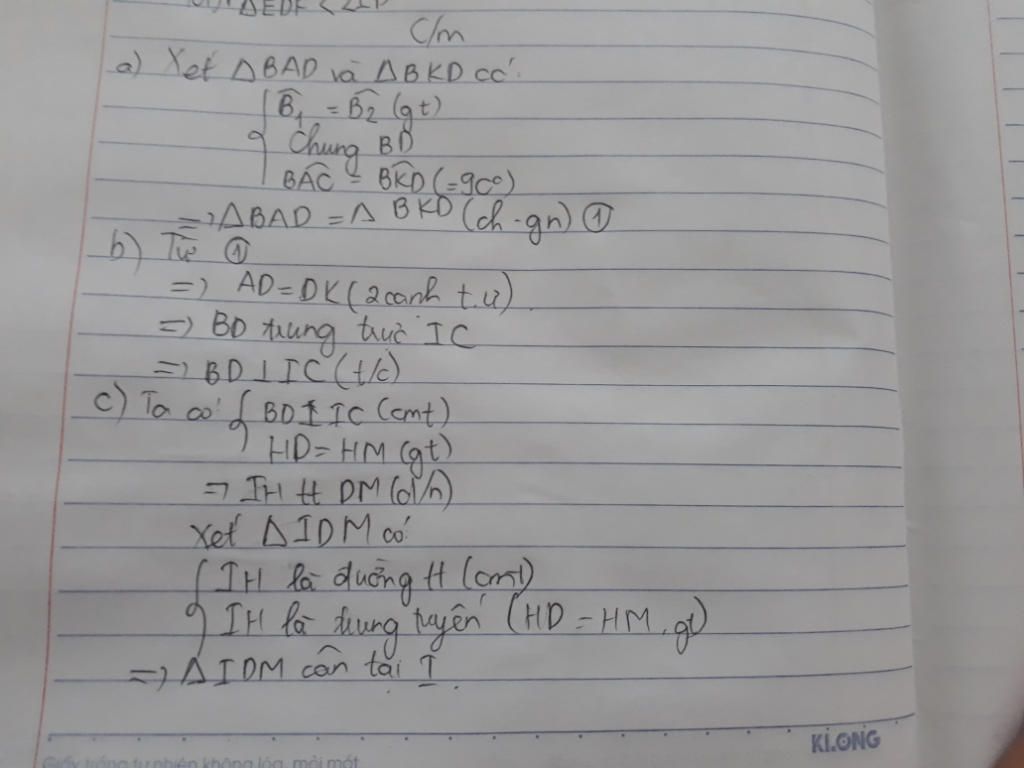 C/m
a) Xét ΔBAD và ΔBKD có:
B̂₁ = B̂₂ (gt)
Chung BD
BÂC = BK̂D (=90°)
=> ΔBAD = Δ BKD (ch - gn) ①
b) Từ ①
=> AD = DK (2 cạnh t.ư)
=> BD trung trực IC
=> BD ⊥ IC (t/c)
c) Ta có: BD ⊥ IC (cmt)
HD = HM (gt)
=> IH tt DM (đ/n)
Xét ΔIDM có:
IH là đường tt (cmt)
IH là trung tuyến (HD = HM, gt)
=> ΔIDM cân tại I.
KLONG
Giấy trắng tự nhiên không lóa, mỏi mắt